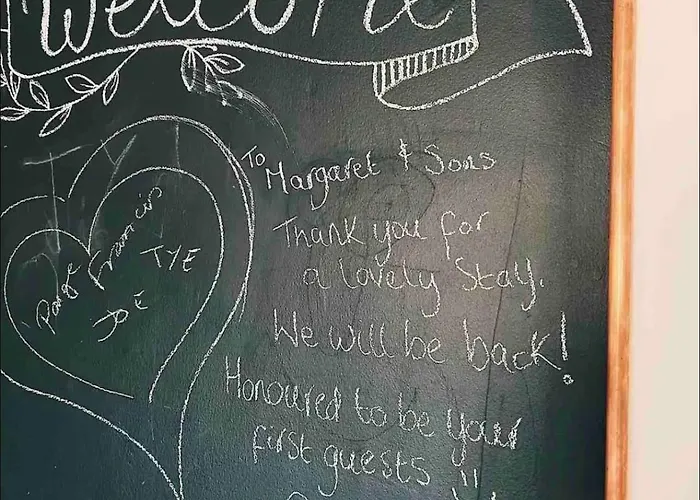 Welcome
To Margaret & Sons
Thank you for
a lovely Stay.
We will be back!
Honoured to be your
first guests !!
Francis
TYE
JOE